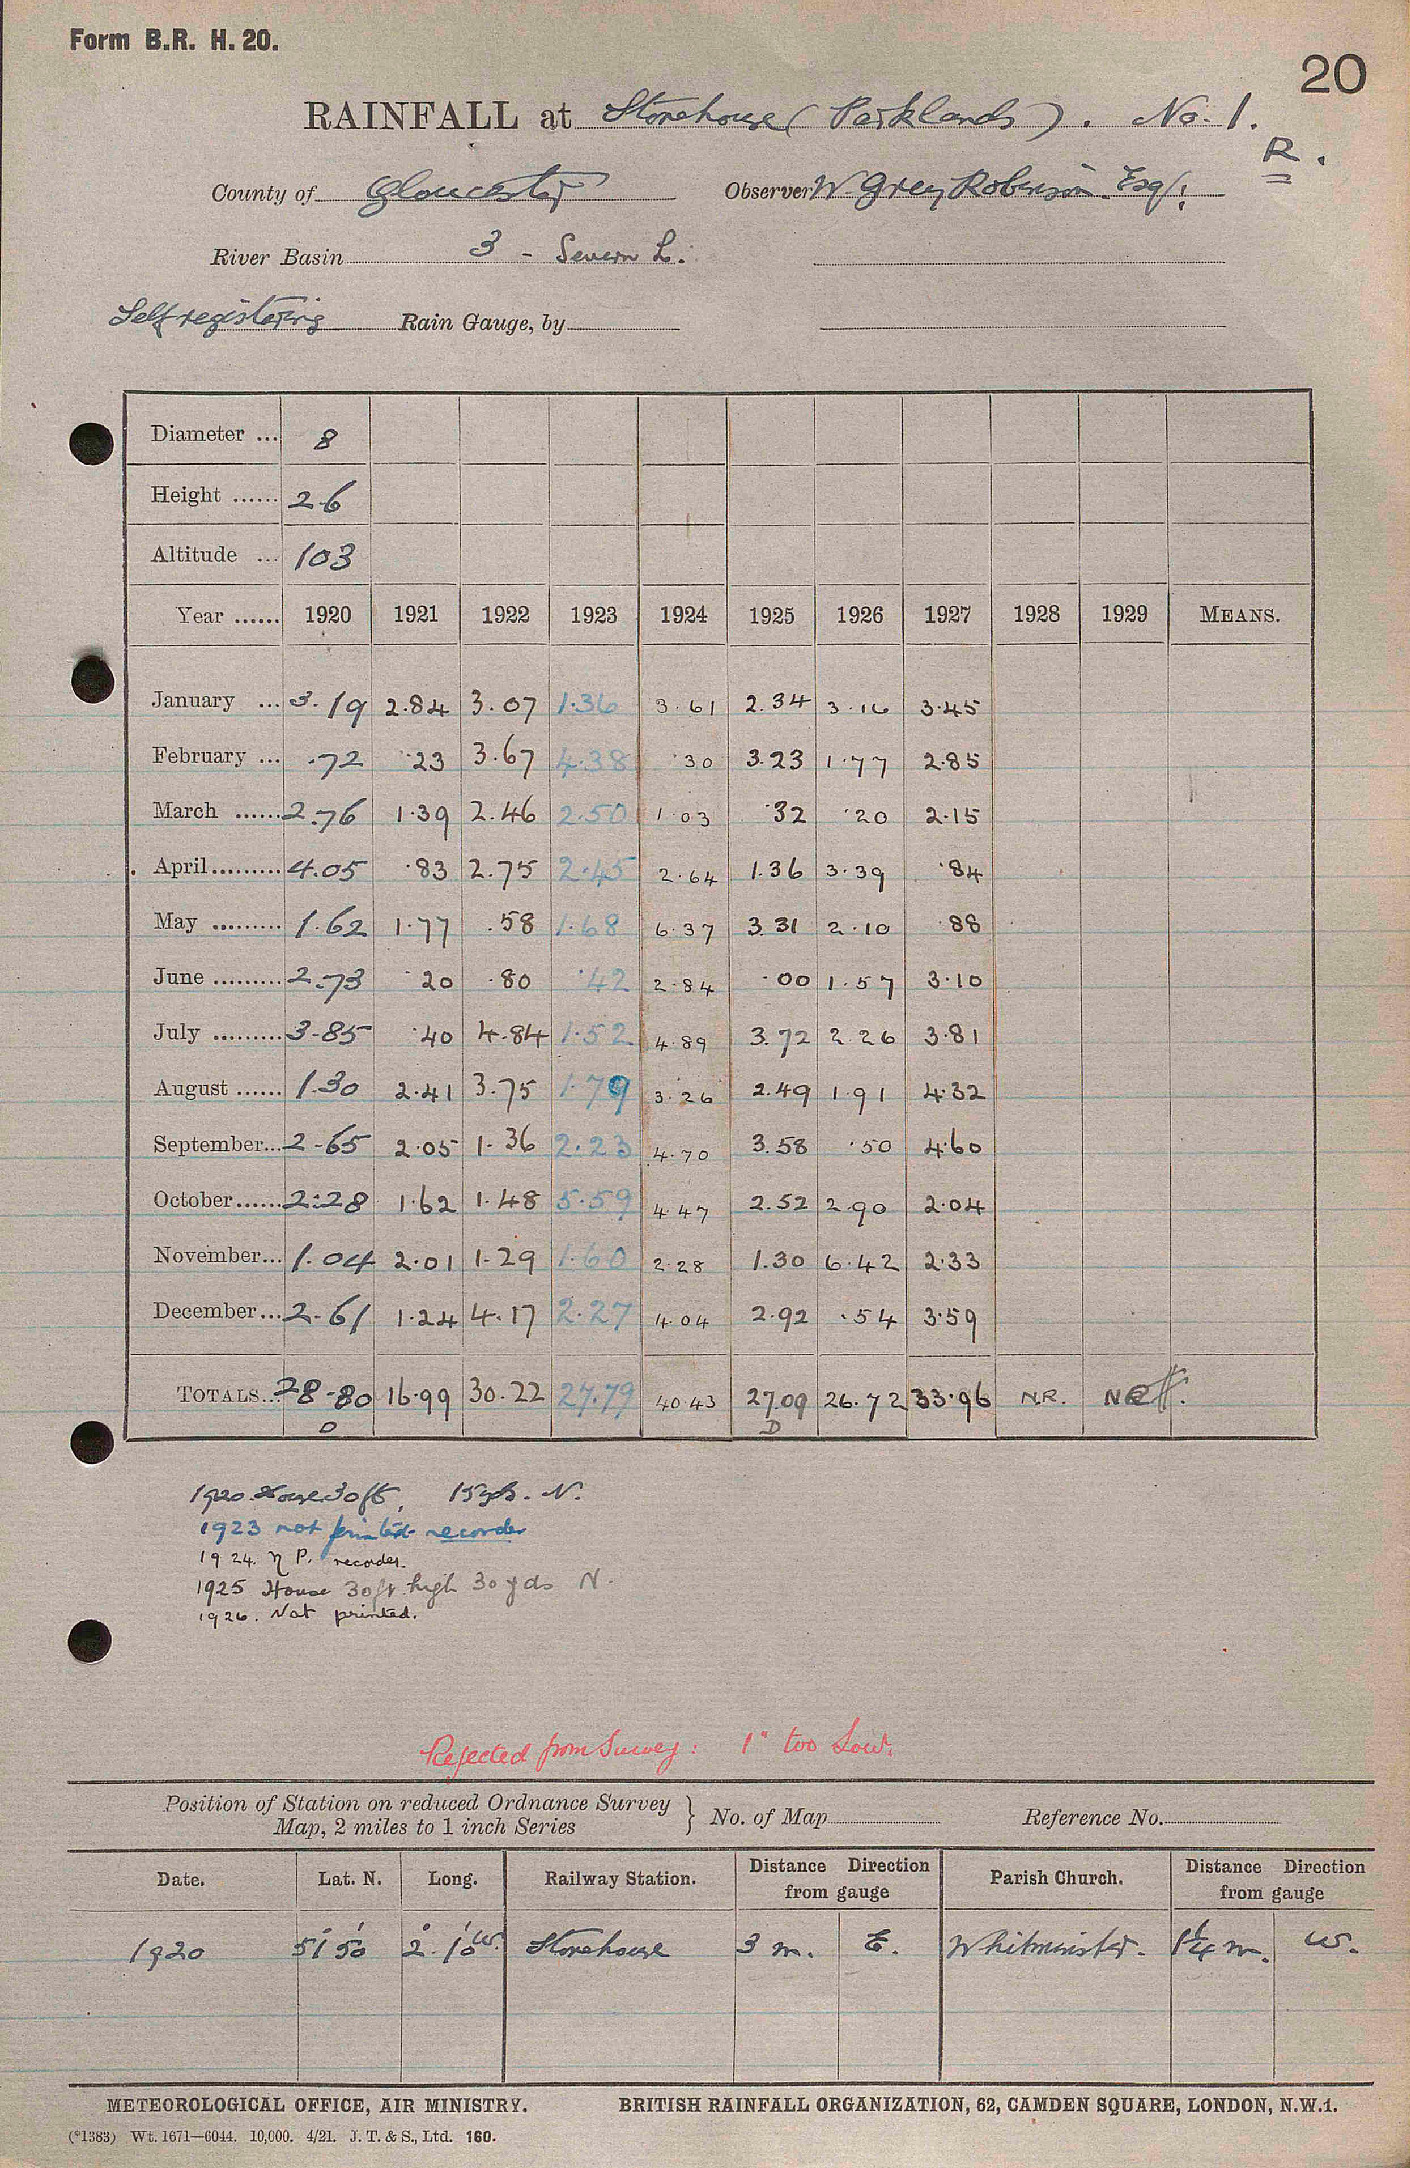 Form B.R. H. 20.
20
RAINFALL at Stonehouse (Parklands). No. 1.
R.
County of Gloucester Observer W. Grey Robinson Esq:
River Basin 3 - Severn L.
Self registering Rain Gauge, by
Diameter ... 8
Height ...... 2-6
Altitude ... 103
Year ...... 1920 1921 1922 1923 1924 1925 1926 1927 1928 1929 MEANS.
January ... 3.19 2.84 3.07 1.36 3.61 2.34 3.16 3.45
February ... .72 .23 3.67 4.38 .30 3.23 1.77 2.85
March ...... 2.76 1.39 2.46 2.50 1.03 .32 .20 2.15
April......... 4.05 .83 2.75 2.45 2.64 1.36 3.39 .84
May ......... 1.62 1.77 .58 1.68 6.37 3.31 2.10 .88
June ......... 2.73 .20 .80 .42 2.84 .00 1.57 3.10
July ......... 3.85 .40 4.84 1.52 4.89 3.72 2.26 3.81
August ...... 1.30 2.41 3.75 1.79 3.26 2.49 1.91 4.32
September... 2.65 2.05 1.36 2.23 4.70 3.58 .50 4.60
October...... 2.28 1.62 1.48 5.59 4.47 2.52 2.90 2.04
November... 1.04 2.01 1.29 1.60 2.28 1.30 6.42 2.33
December... 2.61 1.24 4.17 2.27 4.04 2.92 .54 3.59
TOTALS... 28.80 16.99 30.22 27.79 40.43 27.09 26.72 33.96 N.R. NR
D D
1920. House 30ft, 15yds. N.
1923 not printed recorder
1924. N P. recorder.
1925 House 30ft high 30 yds N.
1926. Not printed.
Rejected from Survey: 1" too Low.
Position of Station on reduced Ordnance Survey Map, 2 miles to 1 inch Series } No. of Map Reference No.
Date. Lat. N. Long. Railway Station. Distance Direction from gauge Parish Church. Distance Direction from gauge
1920 51° 50' 2° 10' W. Stonehouse 3 m. E. Whitminster. 1¼ m. W.
METEOROLOGICAL OFFICE, AIR MINISTRY. BRITISH RAINFALL ORGANIZATION, 62, CAMDEN SQUARE, LONDON, N.W.1.
(*1383) Wt. 1671—6044. 10,000. 4/21. J. T. & S., Ltd. 160.